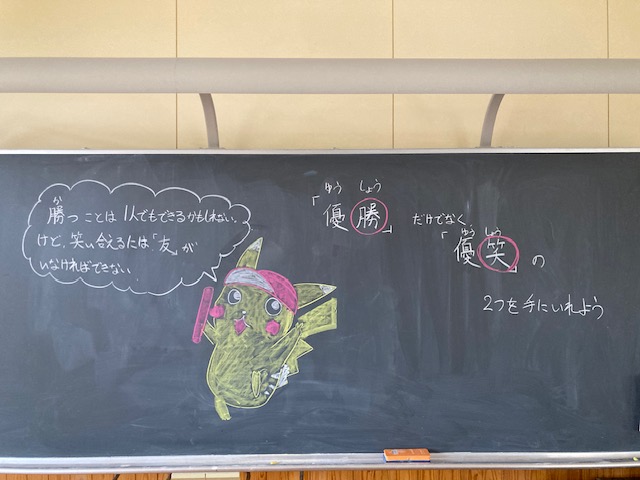 勝つことは1人でもできるかもしれない。
か
けど、笑い合えるには「友」が
いなければできない
ゆう しょう
「優勝」
だけでなく
ゆう しょう
「優笑」の
2つを手にいれよう